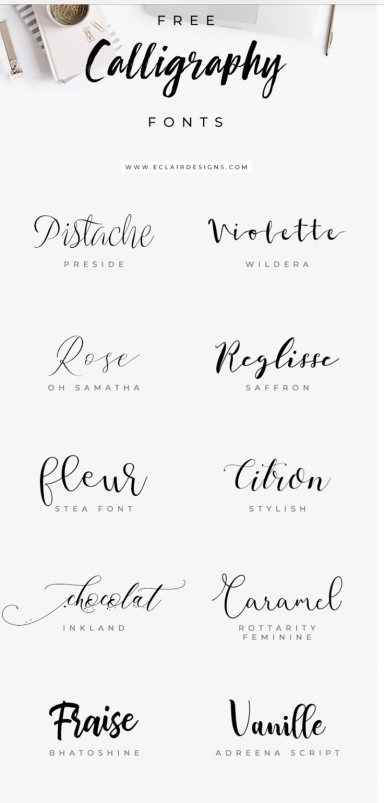 FREE
Calligraphy
FONTS
WWW.ECLAIRDESIGNS.COM
Pistache
PRESIDE
Violette
WILDERA
Rose
OH SAMATHA
Reglisse
SAFFRON
fleur
STEA FONT
Citron
STYLISH
chocolat
INKLAND
Caramel
ROTTARITY
FEMININE
Fraise
BHATOSHINE
Vanille
ADREENA SCRIPT